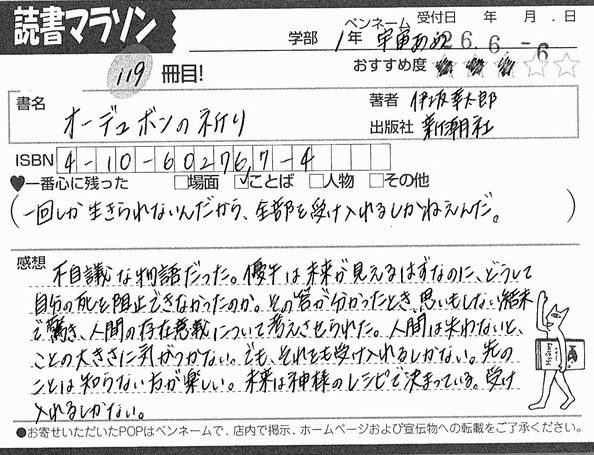 読書マラソン
119 冊目!
学部 1年
ペンネーム 宇宙あめ
受付日 年 月 . 日
26. 6. -6
おすすめ度 ★★★☆☆
書名
オーデュボンの祈り
著者 伊坂幸太郎
出版社 新潮社
ISBN 4-10-602767-4
♥一番心に残った □場面 ☑ことば □人物 □その他
(一回しか生きられないんだから、全部を受け入れるしかねえんだ。)
感想
不自議な物語だった。優午は未来が見えるはずなのに、どうして
自分の死を阻止できなかったのか。その答が分かったとき、思いもしない結末
で驚き、人間の存在意義について考えさせられた。人間は失わないと、
ことの大きさに気がつかない。でも、それも受け入れるしかない。先の
ことは知らない方が楽しい。未来は神様のレシピで決まっている。受け
入れるしかない。
●お寄せいただいたPOPはペンネームで、店内で掲示、ホームページおよび宣伝物への転載をご了承ください。